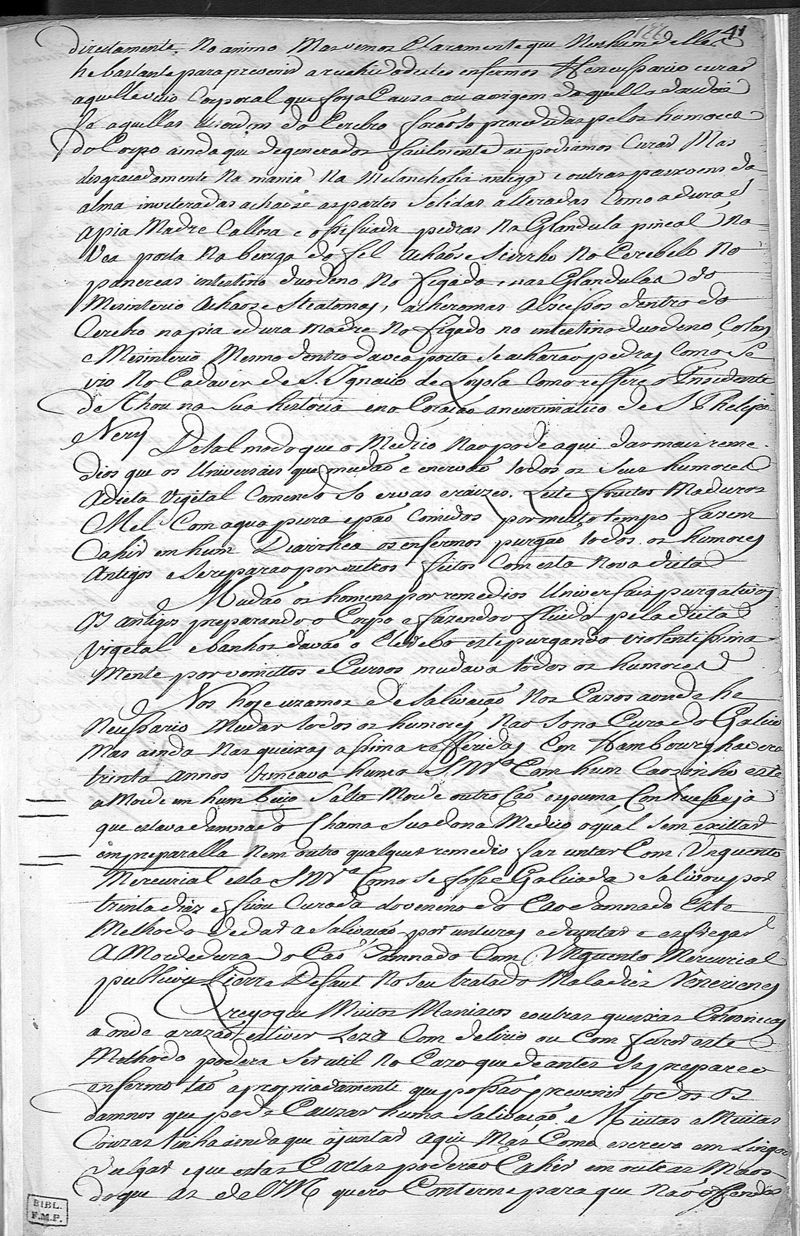 41
directamente no animo Mas vemos claramente que Nenhum delles
he bastante para prevenir a recahida destes enfermos He necessario curar
aquelle vicio Corporal que foy a Causa ou a origem daquella
Se aquellas desordens do Cerebro forão só procedidas pelos humores
do Corpo ainda que degenerados facilmente as podiamos Curar Mas
desgraciadamente na mania na Melancholia antiga e outras paixoens da
alma inveteradas achaõse as partes Solidas alteradas Como a dura e
a pia Madre Callosa e ossificada pedras na Glandula pineal na
Vea porta na bexiga do fel Achaõse Scirrho no Cerebelo no
pancreas intestino duodeno no figado e nas Glandulas do
Misinterio Achaõse Steatomas, atheromas abscessos dentro do
Cerebro na pia e dura Madre no figado no intestino duodeno, Colon
e Misinterio Mesmo dentro da vea porta se acharaõ pedras como se
vio no Cadaver de S. Ignacio de Loyola Como reffere o Presidente
de Thou na sua historia e no Coraçaõ aneurismático de S Phelipe
Nery De tal modo que o Medico Naõ pode aqui dar mais reme-
dios que os Universais que mudaõ e todos os Seus humores
A dieta Vigetal Comendo só ervas e raizes. Leite frutos Maduros
Mel Com agua pura e paõ Comidos por muito tempo fazem
Cahir em hum Diarrhea os enfermos purgaõ todos os humores
Antigos e Se reparaõ por outros feitos Com esta Nova dieta
Mudaõ os homens por remedios Universais purgativos
Os antigos preparando o Corpo e fazendo o fluido pela dieta
Vigetal e banhos davaõ o Eleboro este purgando violentissima
Mente por vomittos e Cursos mudava todos os humores
Nos hoje uzamos de Salivaçaõ Nos Cazos aonde he
Necessario Mudar todos os humores, Não So na Cura do Galico
Mas ainda nas queixas assima refferidas Em Hambourg havera
trinta annos brincava huma Snr.ª Com hum Caõzinho este
a Morde em hum beiço Salta Morde outro Caõ espuma Conheçe se ja
que estava damnado Chama Sua dona Medico o qual Sem exitar
em preparalla Nem outro qualquer remedio faz untar Com Unguento
Mercurial esta Snr.ª Como Se fosse Galicada Salivou por
trinta dias e ficou Curada do veneno do Cão damnado Este
Methodo de dar a Salivaçaõ por unturas e de untar e esfregar
A Mordedura do Caõ Damnado Com Unguento Mercurial
publicou Pierre Desault no seu tratado Maladies Veneriennes
Creyo que Muitos Maniacos e outras queixas Chronicas
aonde a razaõ estiver Leza Com delirio ou Com furor este
Methodo podera Ser util no Cazo que de antes Se prepare o
enfermo taõ apropriadamente que possaõ prevenir todos os
damnos que pode Cauzar huma Salivação. Muitas e Muitas
Couzas tinha ainda que ajuntar aqui Mas Como escrevo em Lingoa
Vulgar e que estas Cartas poderaõ Cahir em outras Maos
do que as de VM quero Conterme para que Naõ offendaõ
BIBL.
F.M.P.